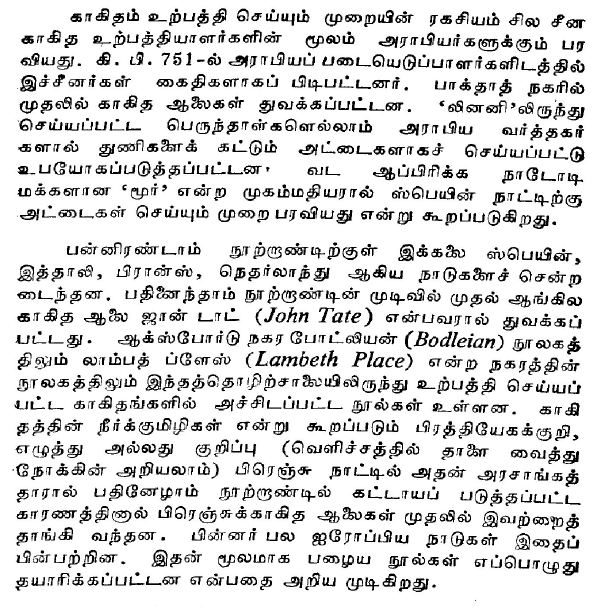 காகிதம் உற்பத்தி செய்யும் முறையின் ரகசியம் சில சீன
காகித உற்பத்தியாளர்களின் மூலம் அராபியர்களுக்கும் பர
வியது. கி. பி. 751-ல் அராபியப் படையெடுப்பாளர்களிடத்தில்
இச்சீனர்கள் கைதிகளாகப் பிடிபட்டனர். பாக்தாத் நகரில்
முதலில் காகித ஆலைகள் துவக்கப்பட்டன. ‘லினனி’லிருந்து
செய்யப்பட்ட பெருந்தாள்களெல்லாம் அராபிய வர்த்தகர்
களால் துணிகளைக் கட்டும் அட்டைகளாகச் செய்யப்பட்டு
உபயோகப்படுத்தப்பட்டன. வட ஆப்பிரிக்க நாடோடி
மக்களான ‘மூர்’ என்ற முகம்மதியரால் ஸ்பெயின் நாட்டிற்கு
அட்டைகள் செய்யும் முறை பரவியது என்று கூறப்படுகிறது.
பன்னிரண்டாம் நூற்றாண்டிற்குள் இக்கலை ஸ்பெயின்,
இத்தாலி, பிரான்ஸ், நெதர்லாந்து ஆகிய நாடுகளைச் சென்ற
டைந்தன. பதினைந்தாம் நூற்றாண்டின் முடிவில் முதல் ஆங்கில
காகித ஆலை ஜான் டாட் (John Tate) என்பவரால் துவக்கப்
பட்டது. ஆக்ஸ்போர்டு நகர போட்லியன் (Bodleian) நூலகத்
திலும் லாம்பத் ப்ளேஸ் (Lambeth Place) என்ற நகரத்தின்
நூலகத்திலும் இந்தத்தொழிற்சாலையிலிருந்து உற்பத்தி செய்யப்
பட்ட காகிதங்களில் அச்சிடப்பட்ட நூல்கள் உள்ளன. காகி
தத்தின் நீர்க்குமிழிகள் என்று கூறப்படும் பிரத்தியேகக்குறி,
எழுத்து அல்லது குறிப்பு (வெளிச்சத்தில் தாளை வைத்து
நோக்கின் அறியலாம்) பிரெஞ்சு நாட்டில் அதன் அரசாங்கத்
தாரால் பதினேழாம் நூற்றாண்டில் கட்டாயப் படுத்தப்பட்ட
காரணத்தினால் பிரெஞ்சுக்காகித ஆலைகள் முதலில் இவற்றைத்
தாங்கி வந்தன. பின்னர் பல ஐரோப்பிய நாடுகள் இதைப்
பின்பற்றின. இதன் மூலமாக பழைய நூல்கள் எப்பொழுது
தயாரிக்கப்பட்டன என்பதை அறிய முடிகிறது.